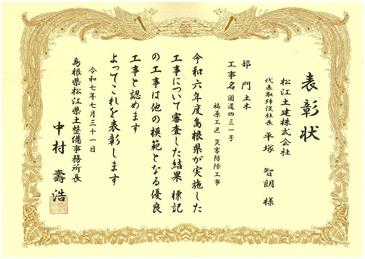 表彰状
松江土建株式会社
代表取締役社長 平塚 智朗 様
部門 土木
工事名 国道四三一号
福原工区 災害防除工事
令和六年度島根県が実施した
工事について審査した結果 標記
の工事は他の模範となる優良
工事と認めます
よってこれを表彰します
令和七年七月三十一日
島根県松江県土整備事務所長
中村 壽浩